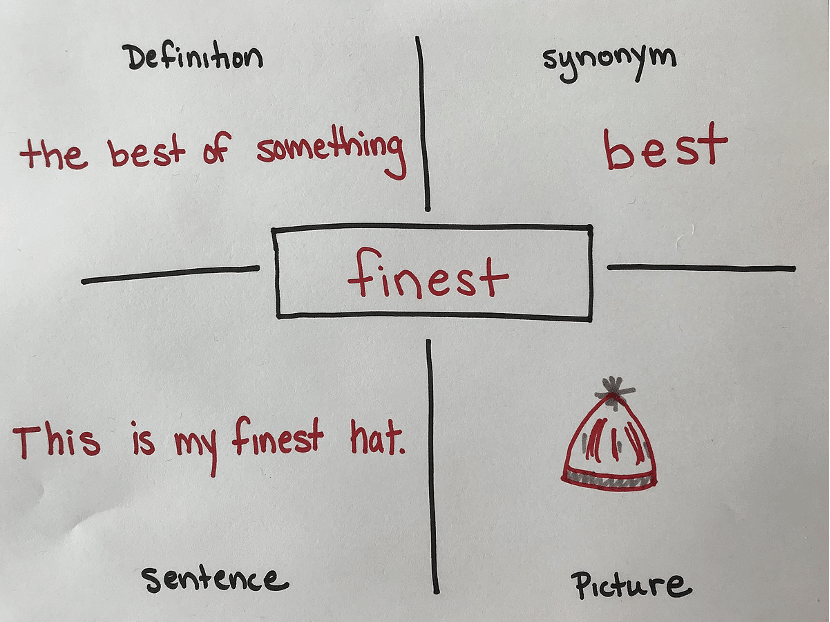 Definition
synonym
the best of something
best
finest
This is my finest hat.
sentence
Picture